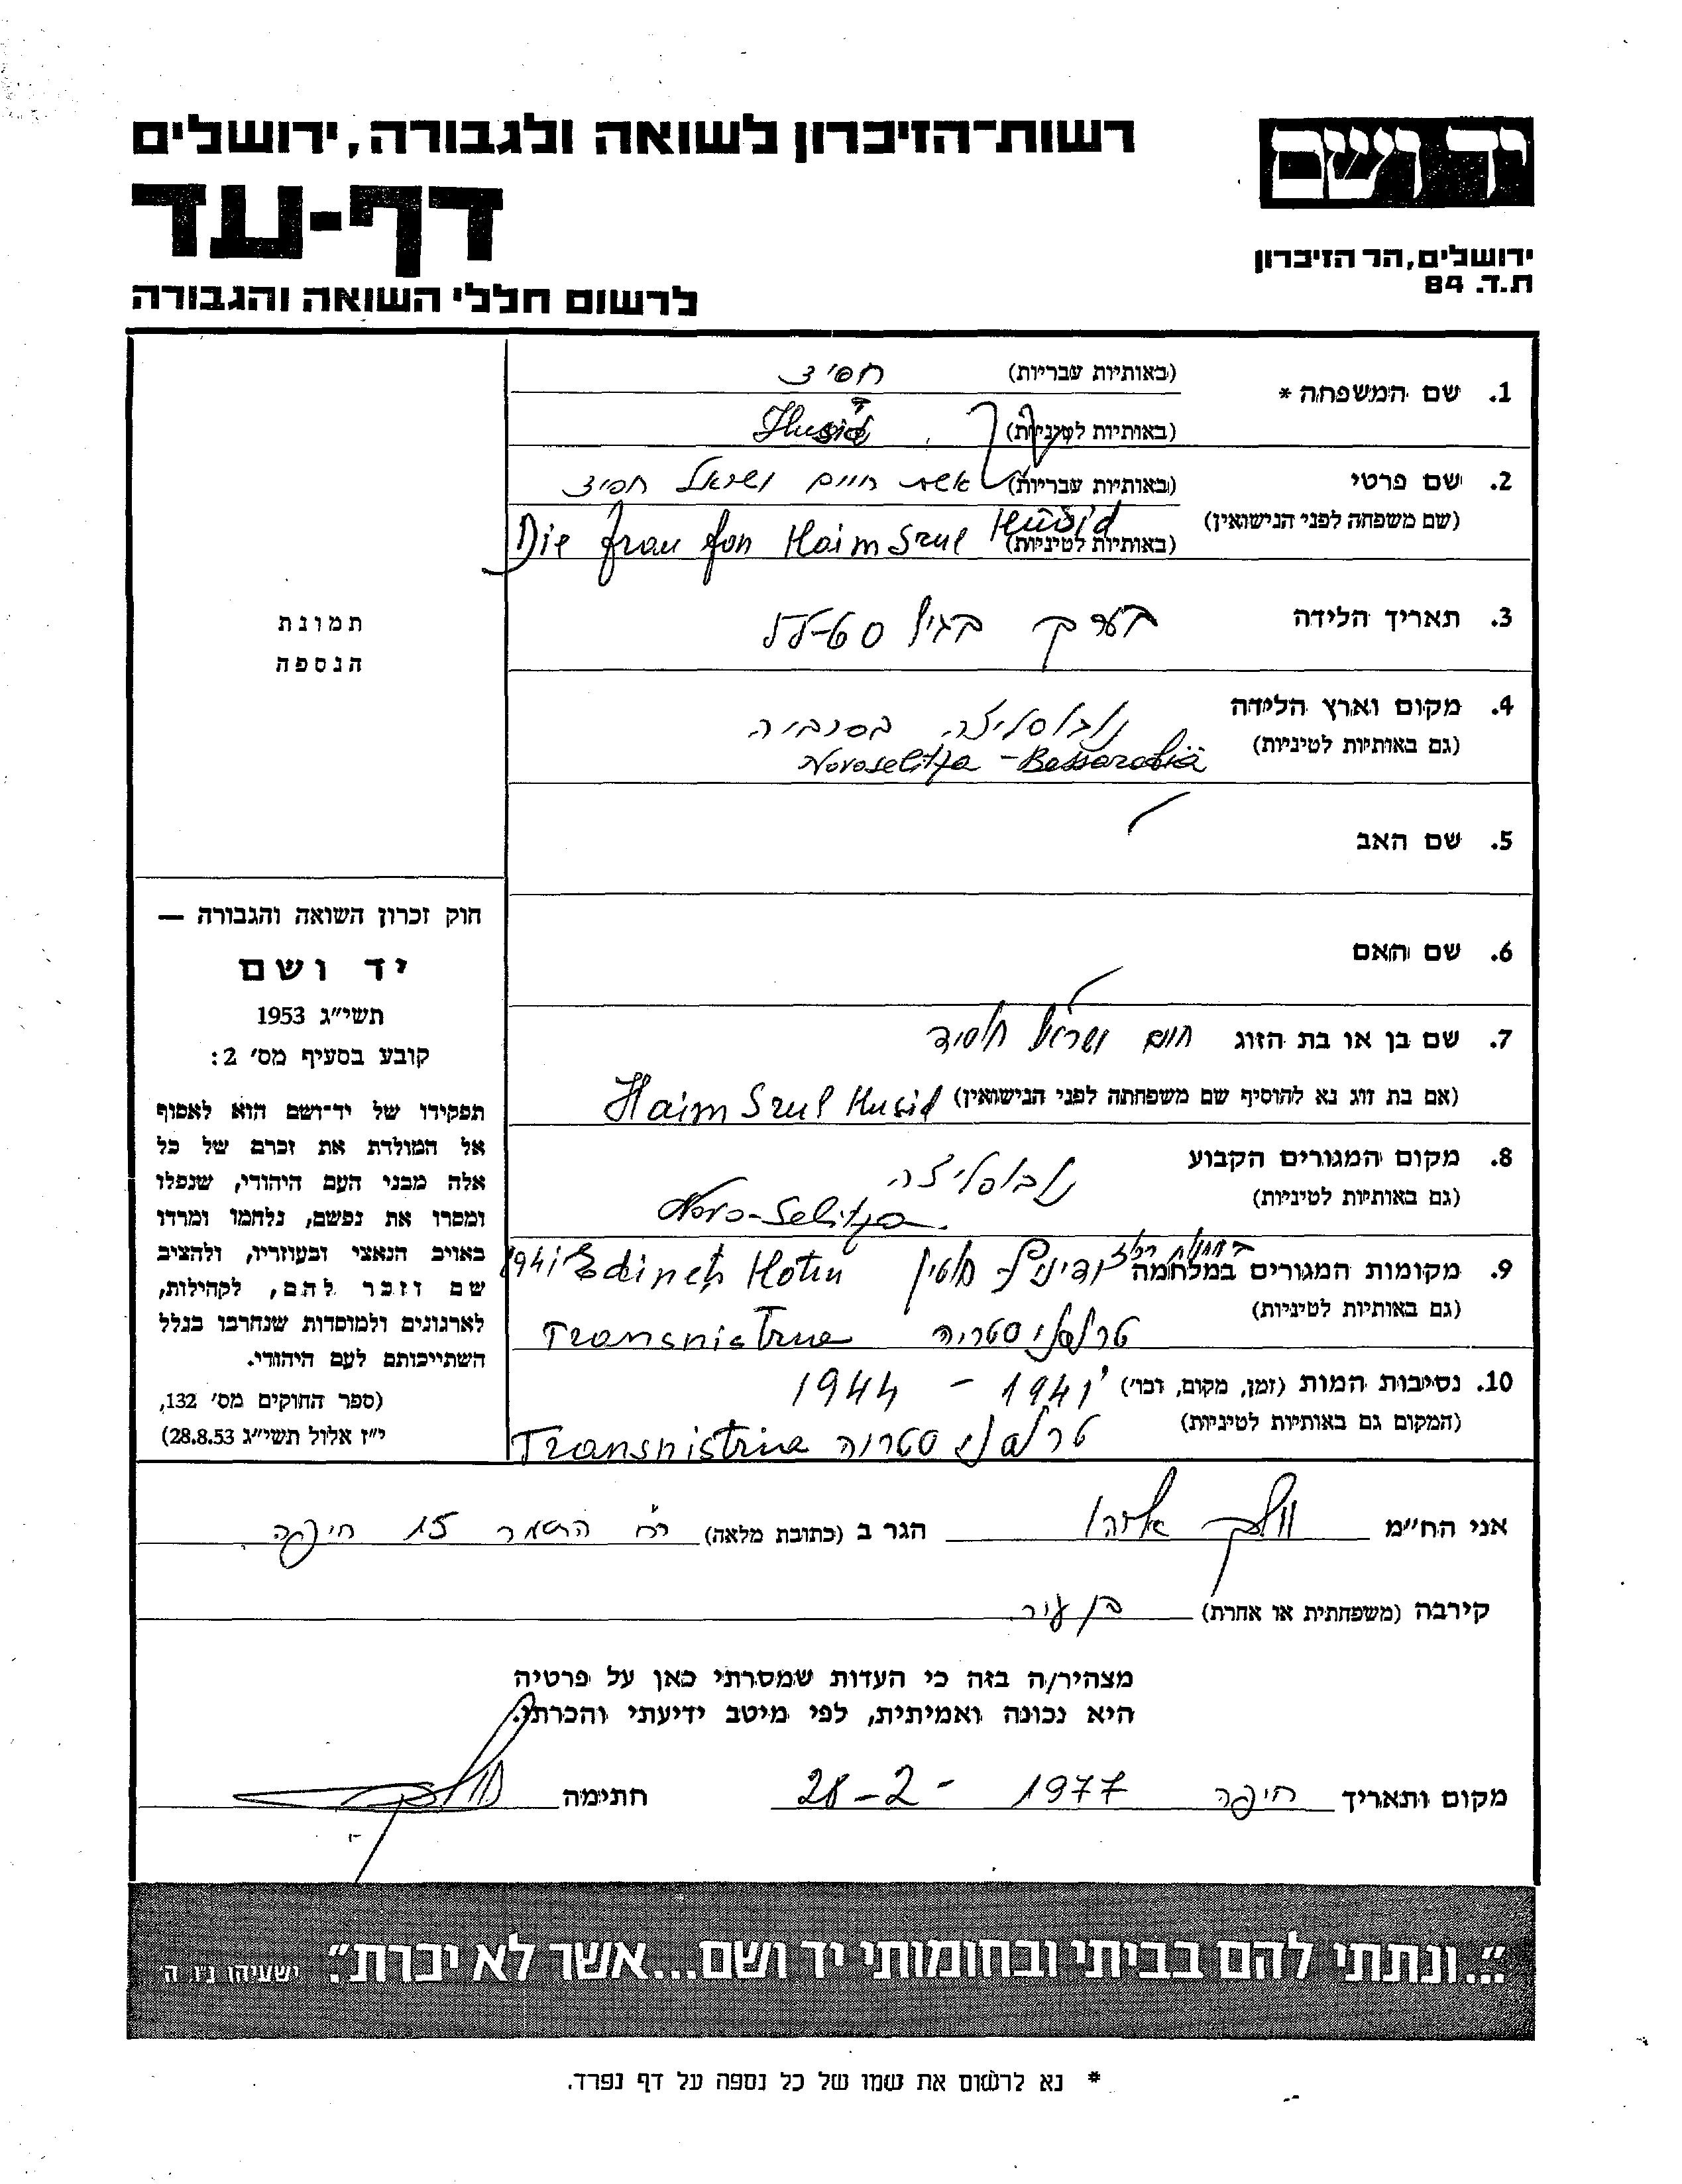 רשות-הזיכרון לשואה ולגבורה, ירושלים
יד ושם
דף-עד
ירושלים, הר הזיכרון
ת.ד. 84
לרשום חללי השואה והגבורה
1. שם המשפחה * (באותיות עבריות)
(באותיות לטיניות) Husid
2. שם פרטי (באותיות עבריות) אשת חיים ישראל
(שם משפחה לפני הנישואין) (באותיות לטיניות) Die frau fon Haim Srul Husid
3. תאריך הלידה בערך בגיל
4. מקום וארץ הלידה נובוסליצה בסרביה
(גם באותיות לטיניות) Novoselitza - Bessarabiä
5. שם האב
6. שם האם
7. שם בן או בת הזוג חיים ישראל חוסיד
(אם בת זוג נא להוסיף שם משפחתה לפני הנישואין) Haim Srul Husid
8. מקום המגורים הקבוע נובוסליצה
(גם באותיות לטיניות) Novo-Selitza
9. מקומות המגורים במלחמה חוטין Edinetz Hotin 1941
(גם באותיות לטיניות) טרנסניסטריה Transnistrua
10. נסיבות המות (זמן, מקום, וכו') 1941 - 1944
(המקום גם באותיות לטיניות) טרנסניסטריה Transnistria
תמונת
הנספה
חוק זכרון השואה והגבורה —
יד ושם
תשי"ג 1953
קובע בסעיף מס' 2:
תפקידו של יד-ושם הוא לאסוף
אל המולדת את זכרם של כל
אלה מבני העם היהודי, שנפלו
ומסרו את נפשם, נלחמו ומרדו
באויב הנאצי ובעוזריו, ולהציב
שם וזכר להם, לקהילות,
לארגונים ולמוסדות שנחרבו בגלל
השתייכותם לעם היהודי.
(ספר החוקים מס' 132,
י"ז אלול תשי"ג 28.8.53)
אני הח"מ וולך הגר ב (כתובת מלאה) רח 15 חיפה
קירבה (משפחתית או אחרת) בן עיר
מצהיר/ה בזה כי העדות שמסרתי כאן על פרטיה
היא נכונה ואמיתית, לפי מיטב ידיעתי והכרתי.
מקום ותאריך חיפה 28-2-1977 חתימה
"...ונתתי להם בביתי ובחומותי יד ושם...אשר לא יכרת". ישעיהו נ"ו ה'
* נא לרשום את שמו של כל נספה על דף נפרד.